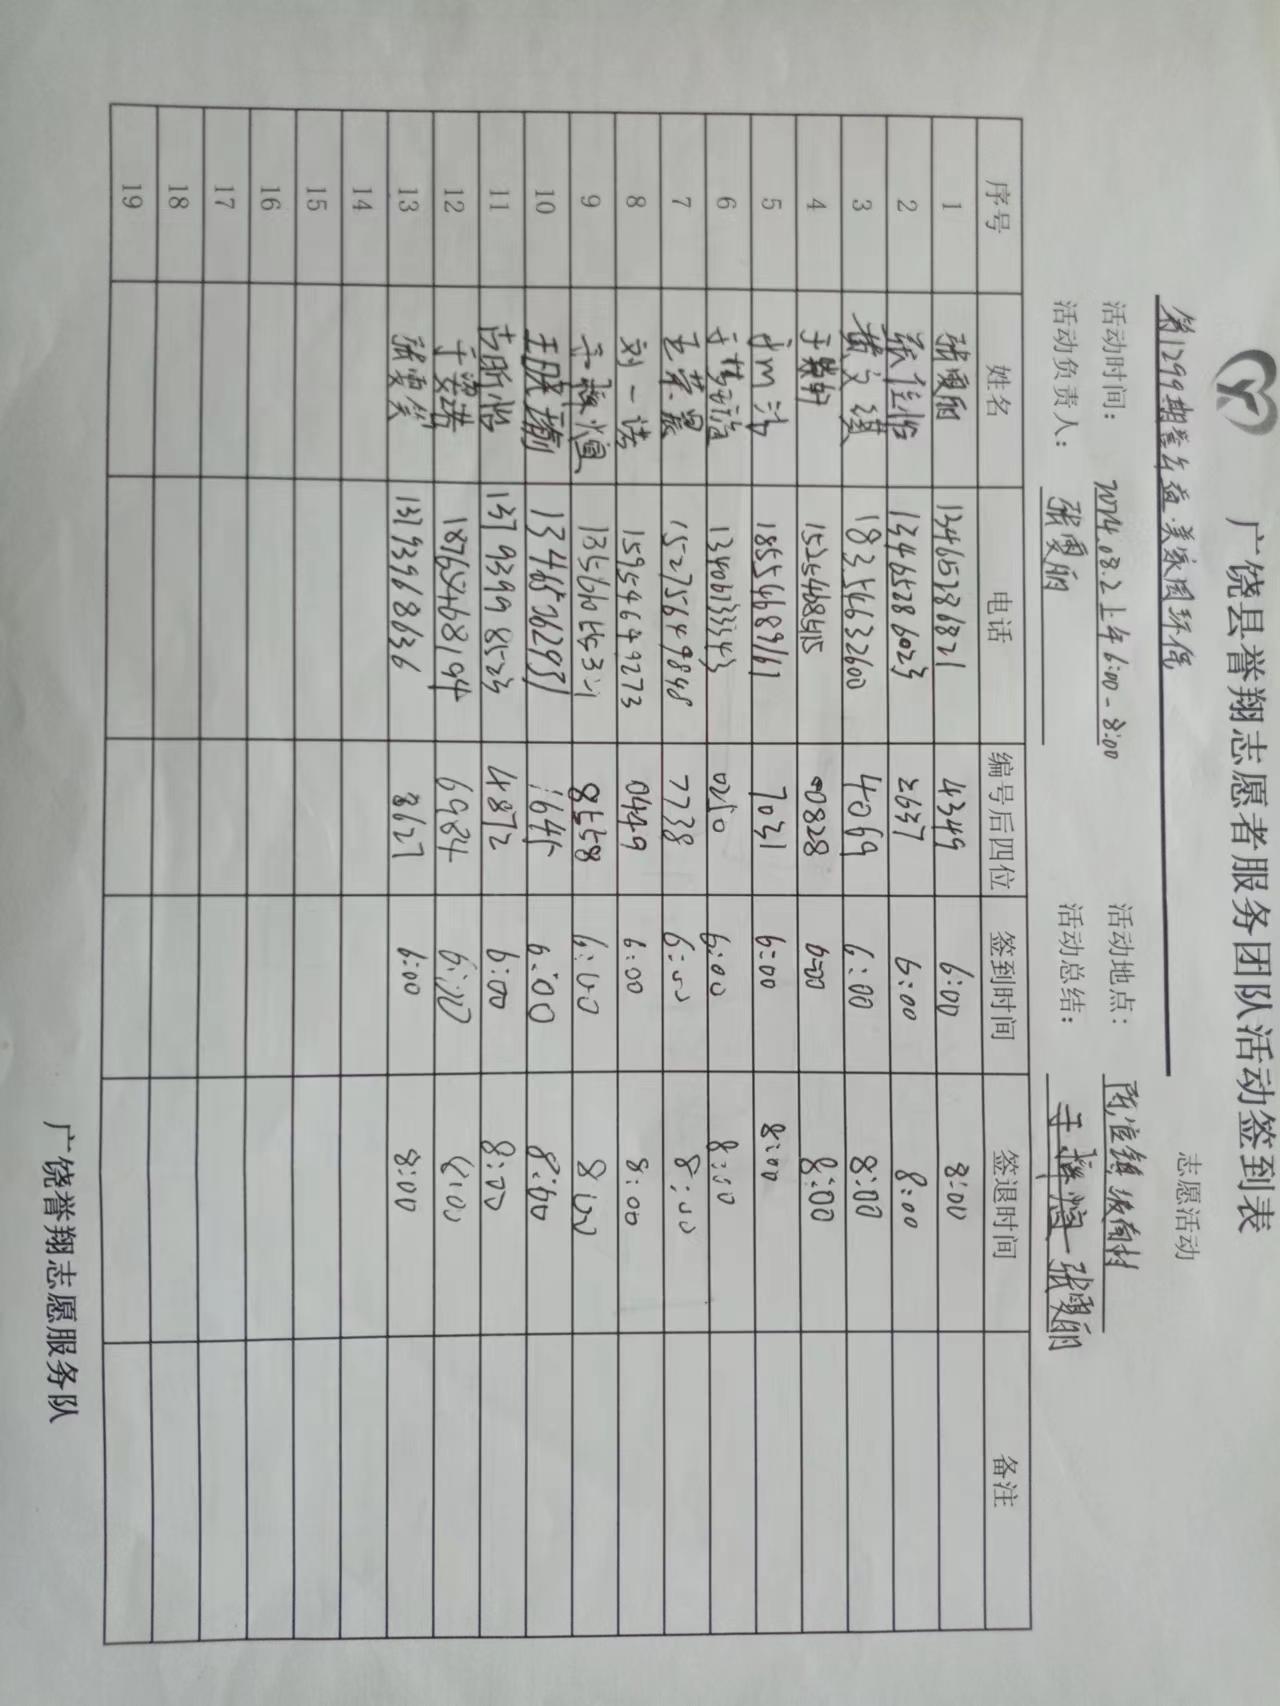 广饶县誉翔志愿者服务团队活动签到表
第1299期 益美家园环保 志愿活动
活动时间： 2024.08.2上午6:00-8:00 活动地点： 陈官镇
活动负责人： 张雯丽 活动总结： 张雯丽
序号 姓名 电话 编号后四位 签到时间 签退时间 备注
1 张雯丽 13465286821 4349 6:00 8:00
2 张佳怡 13465286023 2637 6:00 8:00
3 黄文琪 18354632600 4069 6:00 8:00
4 15254685 00828 6:00 8:00
5 18556689761 7031 6:00 8:00
6 0250 6:00 8:00
7 王荣晨 15275649848 7738 6:00 8:00
8 刘一诺 15954649273 0449 6:00 8:00
9 8558 6:00 8:00
10 王晓瑜 13465262931 1645 6:00 8:00
11 古昕怡 13793998523 4872 6:00 8:00
12 18765468194 6984 6:00 8:00
13 张雯笑 13793968636 8627 6:00 8:00
14
15
16
17
18
19
广饶誉翔志愿服务队